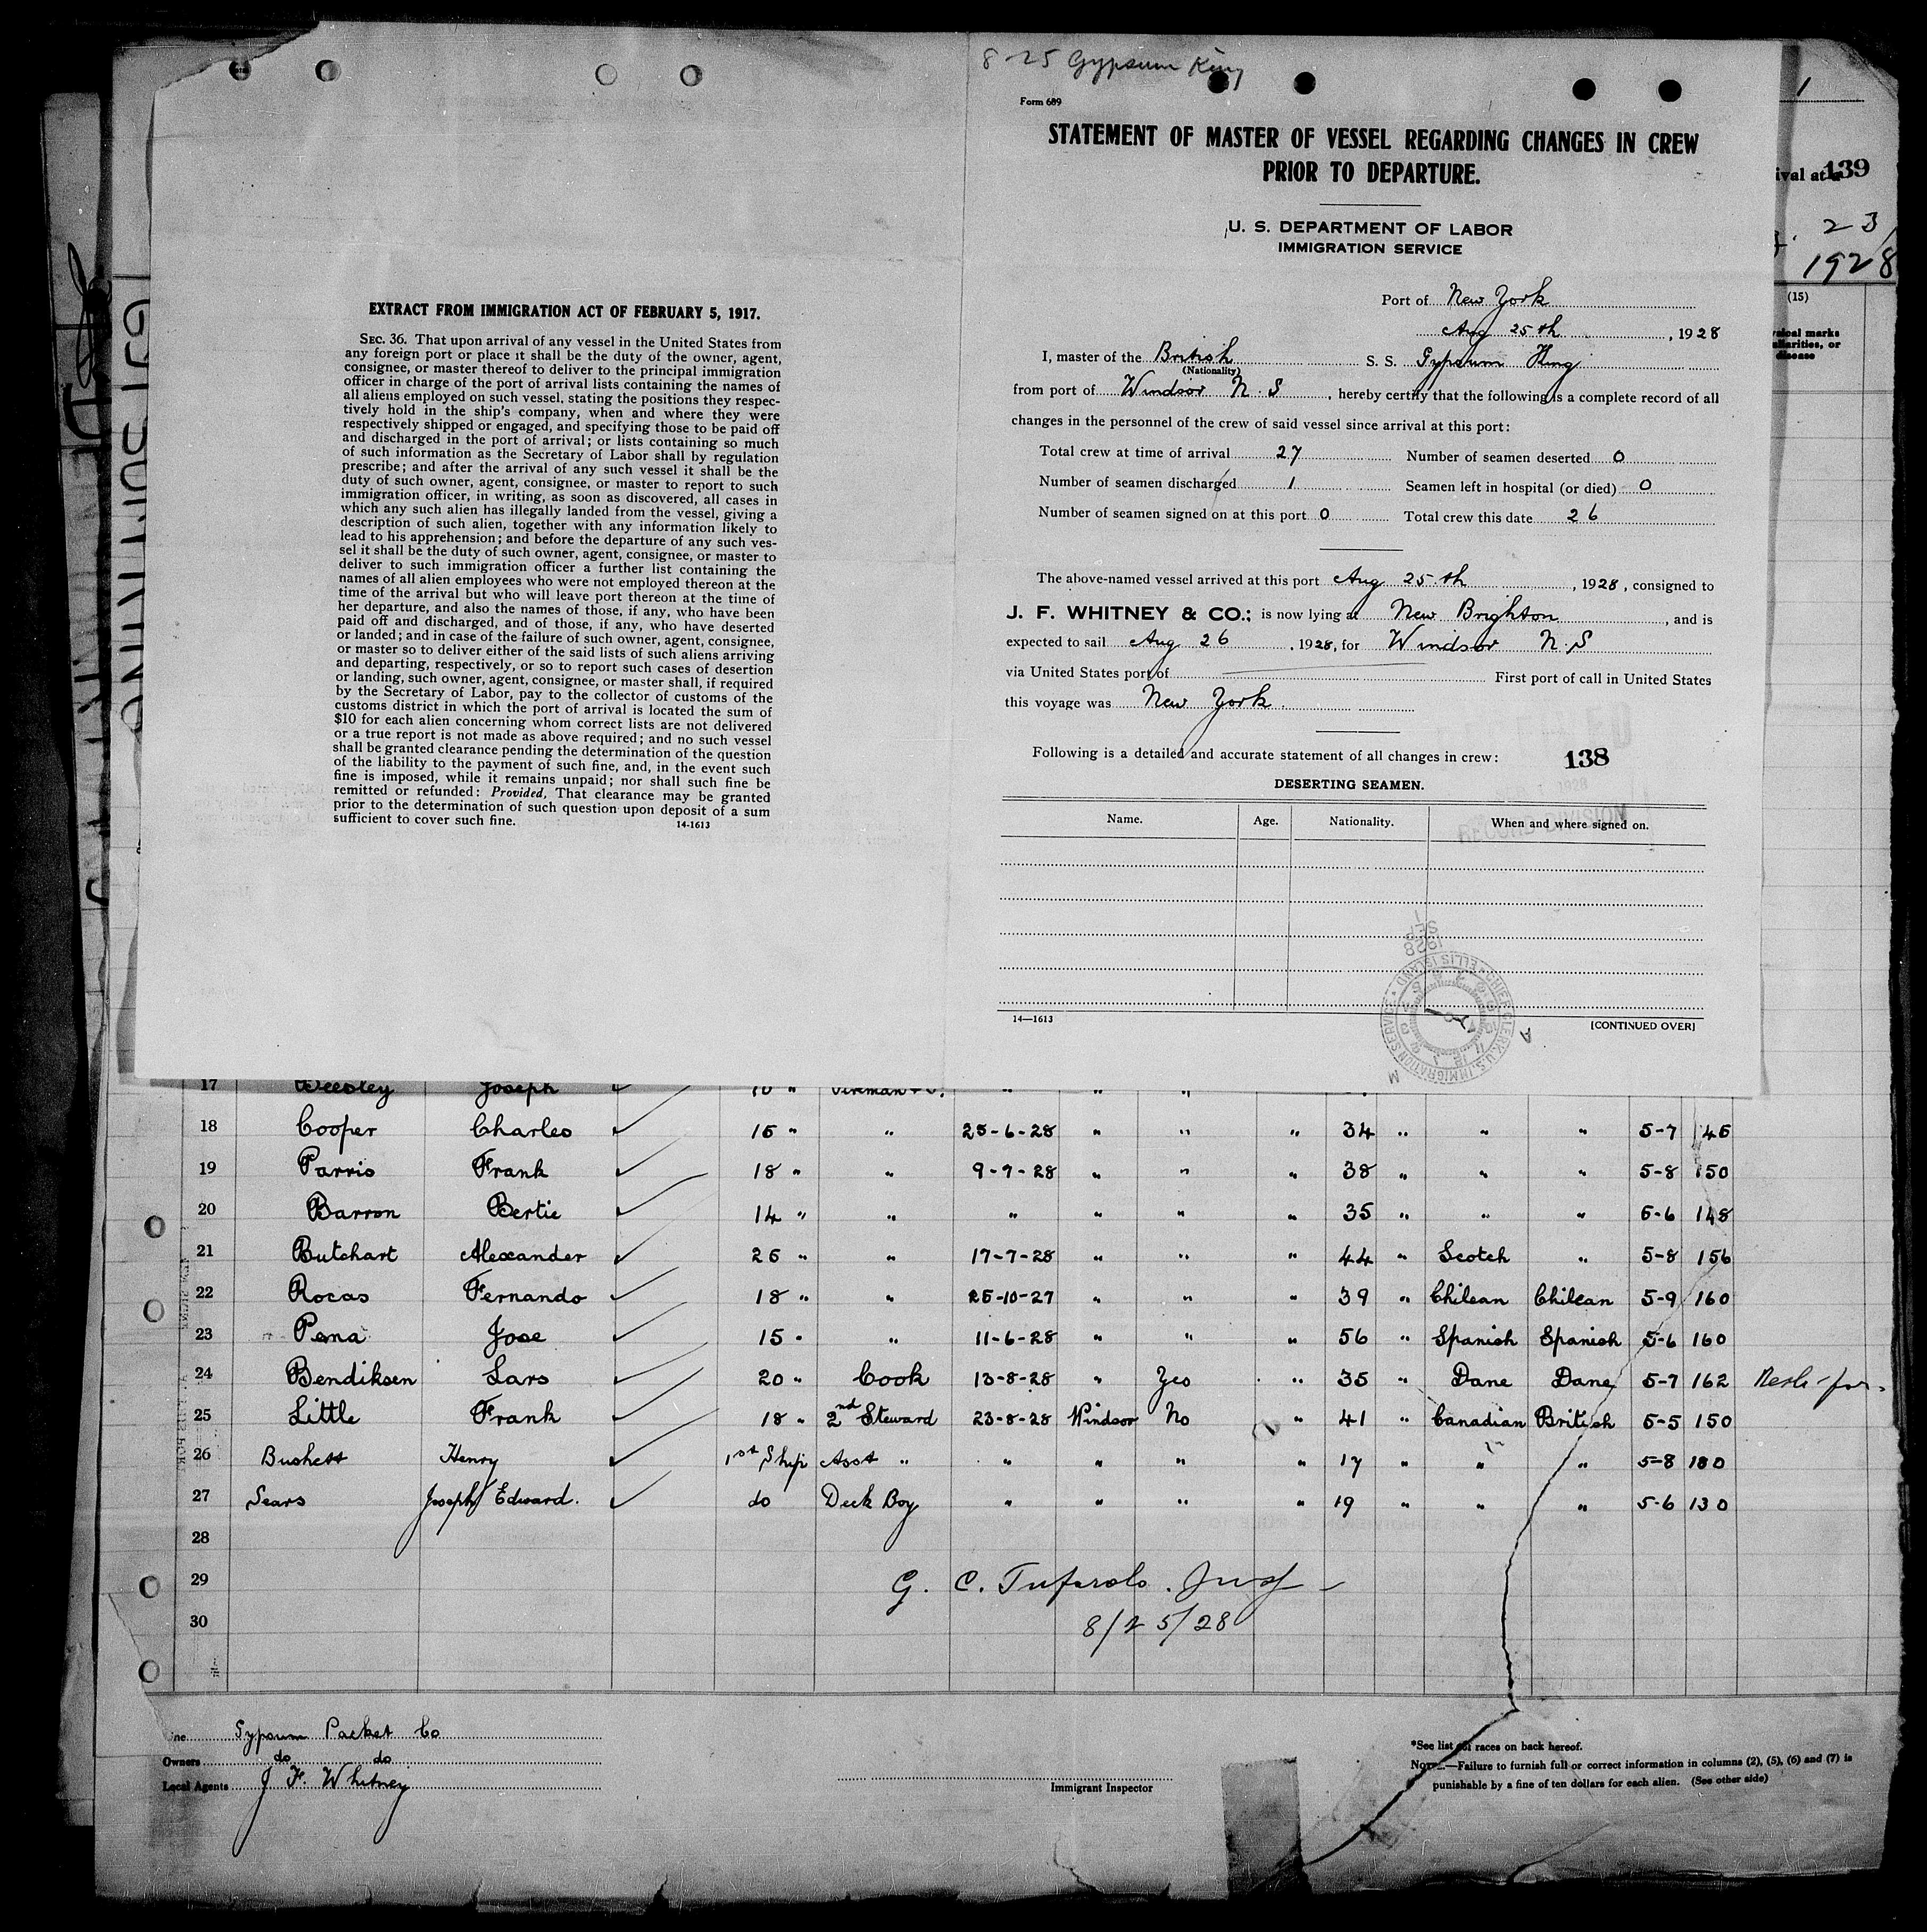 8-25 Gypsum King
Form 689
STATEMENT OF MASTER OF VESSEL REGARDING CHANGES IN CREW
PRIOR TO DEPARTURE.
U. S. DEPARTMENT OF LABOR
IMMIGRATION SERVICE
Port of New York
Aug 25th, 1928
I, master of the British S. S. Gypsum King
(Nationality)
from port of Windsor N. S, hereby certify that the following is a complete record of all
changes in the personnel of the crew of said vessel since arrival at this port:
Total crew at time of arrival 27 Number of seamen deserted 0
Number of seamen discharged 1 Seamen left in hospital (or died) 0
Number of seamen signed on at this port 0 Total crew this date 26
The above-named vessel arrived at this port Aug 25th, 1928, consigned to
J. F. WHITNEY & CO.; is now lying at New Brighton, and is
expected to sail Aug 26, 1928, for Windsor N. S
via United States port of First port of call in United States
this voyage was New York.
Following is a detailed and accurate statement of all changes in crew:
138
DESERTING SEAMEN.
Name. Age. Nationality. When and where signed on.
14—1613 [CONTINUED OVER]
EXTRACT FROM IMMIGRATION ACT OF FEBRUARY 5, 1917.
SEC. 36. That upon arrival of any vessel in the United States from
any foreign port or place it shall be the duty of the owner, agent,
consignee, or master thereof to deliver to the principal immigration
officer in charge of the port of arrival lists containing the names of
all aliens employed on such vessel, stating the positions they respec-
tively hold in the ship's company, when and where they were
respectively shipped or engaged, and specifying those to be paid off
and discharged in the port of arrival; or lists containing so much
of such information as the Secretary of Labor shall by regulation
prescribe; and after the arrival of any such vessel it shall be the
duty of such owner, agent, consignee, or master to report to such
immigration officer, in writing, as soon as discovered, all cases in
which any such alien has illegally landed from the vessel, giving a
description of such alien, together with any information likely to
lead to his apprehension; and before the departure of any such ves-
sel it shall be the duty of such owner, agent, consignee, or master to
deliver to such immigration officer a further list containing the
names of all alien employees who were not employed thereon at the
time of the arrival but who will leave port thereon at the time of
her departure, and also the names of those, if any, who have been
paid off and discharged, and of those, if any, who have deserted
or landed; and in case of the failure of such owner, agent, consignee,
or master so to deliver either of the said lists of such aliens arriving
and departing, respectively, or so to report such cases of desertion
or landing, such owner, agent, consignee, or master shall, if required
by the Secretary of Labor, pay to the collector of customs of the
customs district in which the port of arrival is located the sum of
$10 for each alien concerning whom correct lists are not delivered
or a true report is not made as above required; and no such vessel
shall be granted clearance pending the determination of the question
of the liability to the payment of such fine, and, in the event such
fine is imposed, while it remains unpaid; nor shall such fine be
remitted or refunded: Provided, That clearance may be granted
prior to the determination of such question upon deposit of a sum
sufficient to cover such fine.
14-1613
1
ival at 139
23
1928
(15)
17 Joseph
18 Cooper Charles 15 " " 25-6-28 " " " 34 " " " 5-7 145
19 Parris Frank 18 " " 9-7-28 " " " 38 " " " 5-8 150
20 Barron Bertie 14 " " " " " " 35 " " " 5-6 148
21 Butchart Alexander 25 " " 17-7-28 " " " 44 " Scotch " 5-8 156
22 Rocas Fernando 18 " " 25-10-27 " " " 39 " Chilean Chilean 5-9 160
23 Pena Jose 15 " " 11-6-28 " " " 56 " Spanish Spanish 5-6 160
24 Bendiksen Lars 20 " Cook 13-8-28 " Yes " 35 " Dane Dane 5-7 162
25 Little Frank 18 " 2nd Steward 23-8-28 Windsor No " 41 " Canadian British 5-5 150
26 Henry 1st Ship Asst " " " " " 17 " " " 5-8 180
27 Sears Joseph Edward. do Deck Boy " " " " 19 " " " 5-6 130
28
29
30
G. C.
8/25/28
Gypsum Packet Co
Owners do do
Local Agents J F. Whitney
Immigrant Inspector
*See list of races on back hereof.
NOTE.—Failure to furnish full or correct information in columns (2), (5), (6) and (7) is
punishable by a fine of ten dollars for each alien. (See other side)